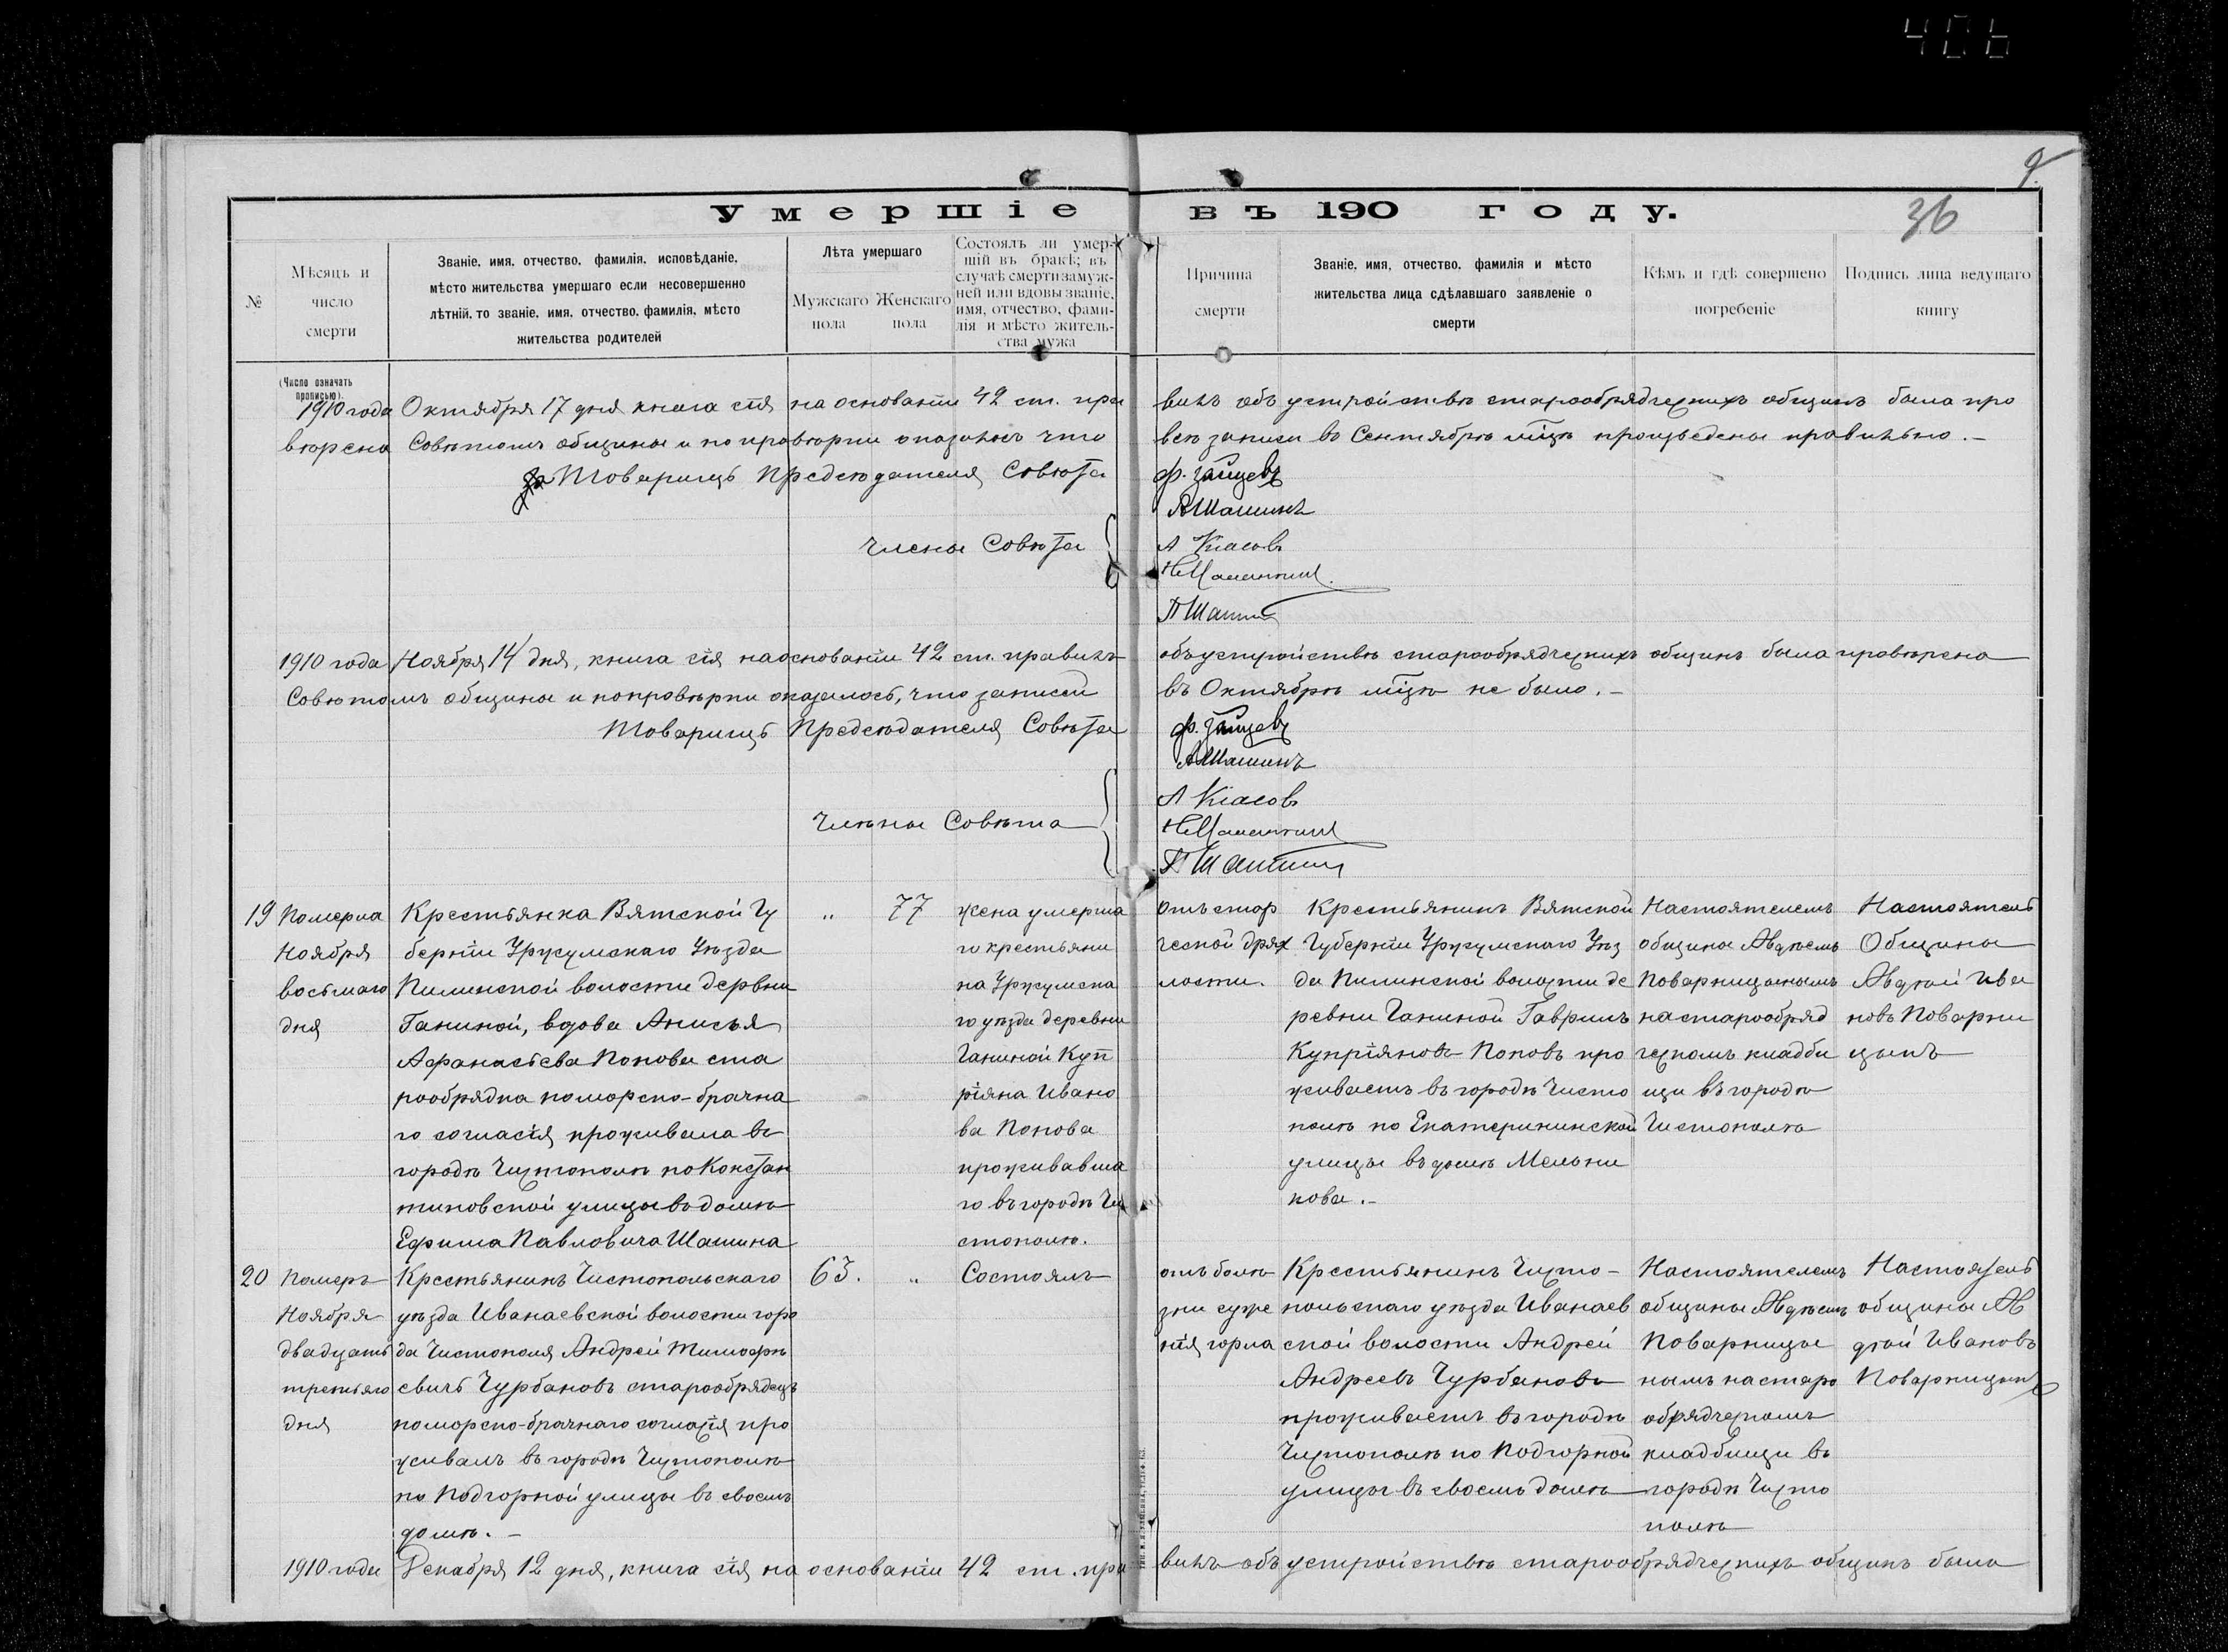 406
9
36
Умершіе въ 190 году.
№
Мѣсяцъ и
число
смерти
Званіе, имя, отчество, фамилія, исповѣданіе,
мѣсто жительства умершаго если несовершенно
лѣтній, то званіе, имя, отчество, фамилія, мѣсто
жительства родителей
Лѣта умершаго
Мужскаго
пола
Женскаго
пола
Состоялъ ли умер-
шій въ бракѣ; въ
случаѣ смерти замуж-
ней или вдовы званіе,
имя, отчество, фами-
лія и мѣсто житель-
ства мужа
Причина
смерти
Званіе, имя, отчество, фамилія и мѣсто
жительства лица сдѣлавшаго заявленіе о
смерти
Кѣмъ и гдѣ совершено
погребеніе
Подпись лица ведущаго
книгу
(Число означать
прописью).
1910 года Октября 17 дня книга сія на основаніи 42 ст. пра вилъ объ устройствѣ старообрядческихъ общинъ была про
вѣрена Совѣтомъ общины и по провѣрки оказалось что всѣ записи въ Сентябрѣ мцѣ произведены правильно.-
За Товарищъ Предсѣдателя Совѣта Ф. Зайцевъ
АШашинъ
Члены Совѣта
А Класовъ
ПШашин
1910 года Ноября 14 дня, книга сія на основаніи 42 ст. правилъ объ устройствѣ старообрядческихъ общинъ была провѣрена
Совѣтомъ общины и по провѣрки оказалось, что записей въ Октябрѣ мцѣ не было.-
Товарищъ Предсѣдателя Совѣта Ф. Зайцевъ
АШашинъ
А Класовъ
Члѣны Совѣта
ПШашин
19
Померла
Ноября
восьмаго
дня
Крестьянка Вятской Гу
берніи Уржумскаго Уѣзда
Пилинской волости дервни
Ганиной, вдова Анисья
Афанасьева Попова ста
рообрядка поморско-брачна
го согласія проживала въ
городѣ Чистополѣ по Констан
тиновской улицы въ домѣ
Ефима Павловича Шашина
"
77
жена умерша
го крестьяни
на Уржумска
го уѣзда деревни
Ганиной Куп
ріяна Ивано
ва Попова
проживавша
го въ городѣ Чи
стополѣ.
отъ стар
ческой дрях
лости.
Крестьянинъ Вятской
Губерніи Уржумскаго Уѣз
да Пилинской волости де
ревни Ганиной Гаврилъ
Купріяновъ Поповъ про
живаетъ въ городѣ Чисто
полѣ по Екатерининской
улицы въ домѣ Мельни
кова.-
Настоятелемъ
общины Авдѣемъ
Поварницынымъ
на старообряд
ческомъ кладби
щи въ городѣ
Чистополѣ
Настоятель
Общины
Авдѣй Ива
новъ Поварни
цынъ
20
Померъ
Ноября
двадцать
третьяго
дня
Крестьянинъ Чистопольскаго
уѣзда Иванаевской волости горо
да Чистополя Андрей Тимофѣ
евичъ Чурбановъ старообрядецъ
поморско-брачнаго согласія про
живалъ въ городѣ Чистополѣ
по Подгорной улицы въ своемъ
домѣ.-
63.
"
Состоялъ
отъ болѣ
зни суже
нія горла
Крестьянинъ Чисто-
польскаго уѣзда Иванаев
ской волости Андрей
Андреевъ Чурбановъ
проживаетъ въ городѣ
Чистополѣ по Подгорной
улицы въ своемъ домѣ
Настоятелемъ
общины Авдѣемъ
Поварницы
нымъ на старо
обрядческомъ
кладбищи въ
городѣ Чисто
полѣ
Настоятель
общины Ав
дѣй Ивановъ
Поварницынъ
1910 года Декабря 12 дня, книга сія на основаніи 42 ст. пра вилъ объ устройствѣ старообрядческихъ общинъ была